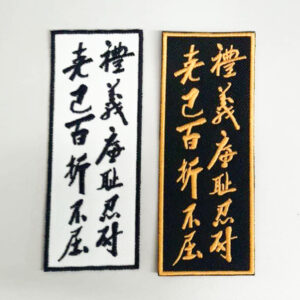 禮義廉耻忍耐
克己百折不屈
禮義廉耻忍耐
克己百折不屈